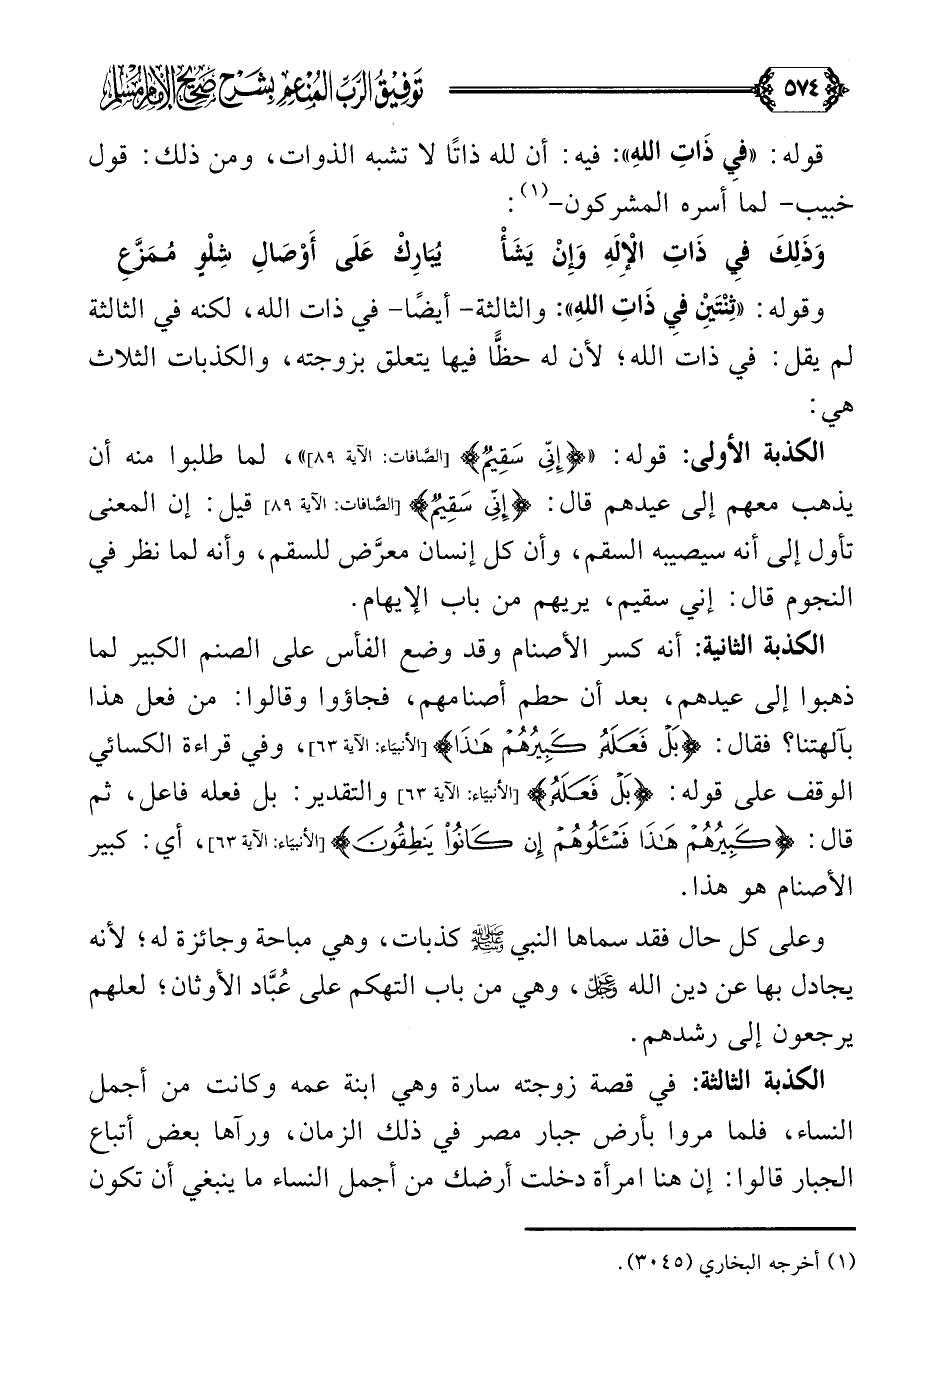 ٥٧٤ توفيق الرب المنعم بشرح صحيح الإمام مسلم
قوله: «فِي ذَاتِ اللهِ»: فيه: أن لله ذاتًا لا تشبه الذوات، ومن ذلك: قول
خبيب- لما أسره المشركون-(١):
وَذَلِكَ فِي ذَاتِ الْإِلَهِ وَإِنْ يَشَأْ يُبَارِكْ عَلَى أَوْصَالِ شِلْوٍ مُمَزَّعِ
وقوله: «ثِنْتَيْنِ فِي ذَاتِ اللهِ»: والثالثة- أيضًا- في ذات الله، لكنه في الثالثة
لم يقل: في ذات الله؛ لأن له حظًّا فيها يتعلق بزوجته، والكذبات الثلاث
هي:
الكذبة الأولى: قوله: «﴿إِنِّي سَقِيمٌ﴾ [الصَّافات: الآية ٨٩]»، لما طلبوا منه أن
يذهب معهم إلى عيدهم قال: ﴿إِنِّي سَقِيمٌ﴾ [الصَّافات: الآية ٨٩] قيل: إن المعنى
تأول إلى أنه سيصيبه السقم، وأن كل إنسان معرَّض للسقم، وأنه لما نظر في
النجوم قال: إني سقيم، يريهم من باب الإيهام.
الكذبة الثانية: أنه كسر الأصنام وقد وضع الفأس على الصنم الكبير لما
ذهبوا إلى عيدهم، بعد أن حطم أصنامهم، فجاؤوا وقالوا: من فعل هذا
بآلهتنا؟ فقال: ﴿بَلْ فَعَلَهُ كَبِيرُهُمْ هَٰذَا﴾ [الأنبيَاء: الآية ٦٣]، وفي قراءة الكسائي
الوقف على قوله: ﴿بَلْ فَعَلَهُ﴾ [الأنبيَاء: الآية ٦٣] والتقدير: بل فعله فاعل، ثم
قال: ﴿كَبِيرُهُمْ هَٰذَا فَسْـَٔلُوهُمْ إِن كَانُوا۟ يَنطِقُونَ﴾ [الأنبيَاء: الآية ٦٣]، أي: كبير
الأصنام هو هذا.
وعلى كل حال فقد سماها النبي ﷺ كذبات، وهي مباحة وجائزة له؛ لأنه
يجادل بها عن دين الله عز وجل، وهي من باب التهكم على عُبَّاد الأوثان؛ لعلهم
يرجعون إلى رشدهم.
الكذبة الثالثة: في قصة زوجته سارة وهي ابنة عمه وكانت من أجمل
النساء، فلما مروا بأرض جبار مصر في ذلك الزمان، ورآها بعض أتباع
الجبار قالوا: إن هنا امرأة دخلت أرضك من أجمل النساء ما ينبغي أن تكون
(١) أخرجه البخاري (٣٠٤٥).